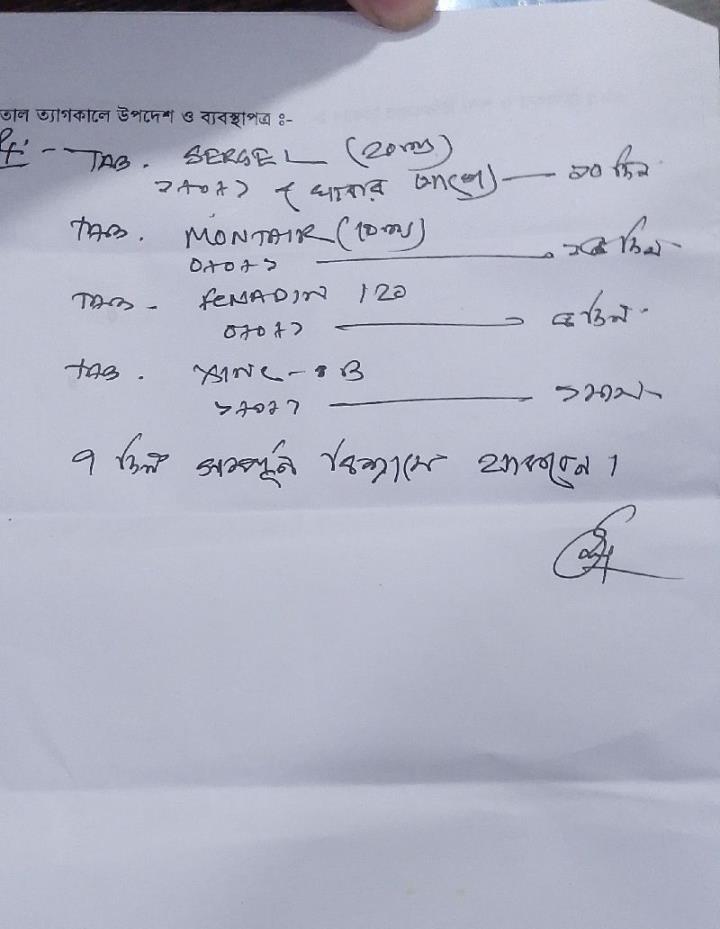 তাল ত্যাগকালে উপদেশ ও ব্যবস্থাপত্র ঃ-
TAB. SERGEL (20mg)
১+০+১ (খাবার আগে) — ২০ দিন
TAB. MONTAIR (10mg)
০+০+১ — দিন
TAB - FENADIN 120
০+০+১ — ৫ দিন
TAB. XINC - B
১+০+১ — ১ মাস
৭ দিন সম্পূর্ন বিশ্রামে থাকবেন।